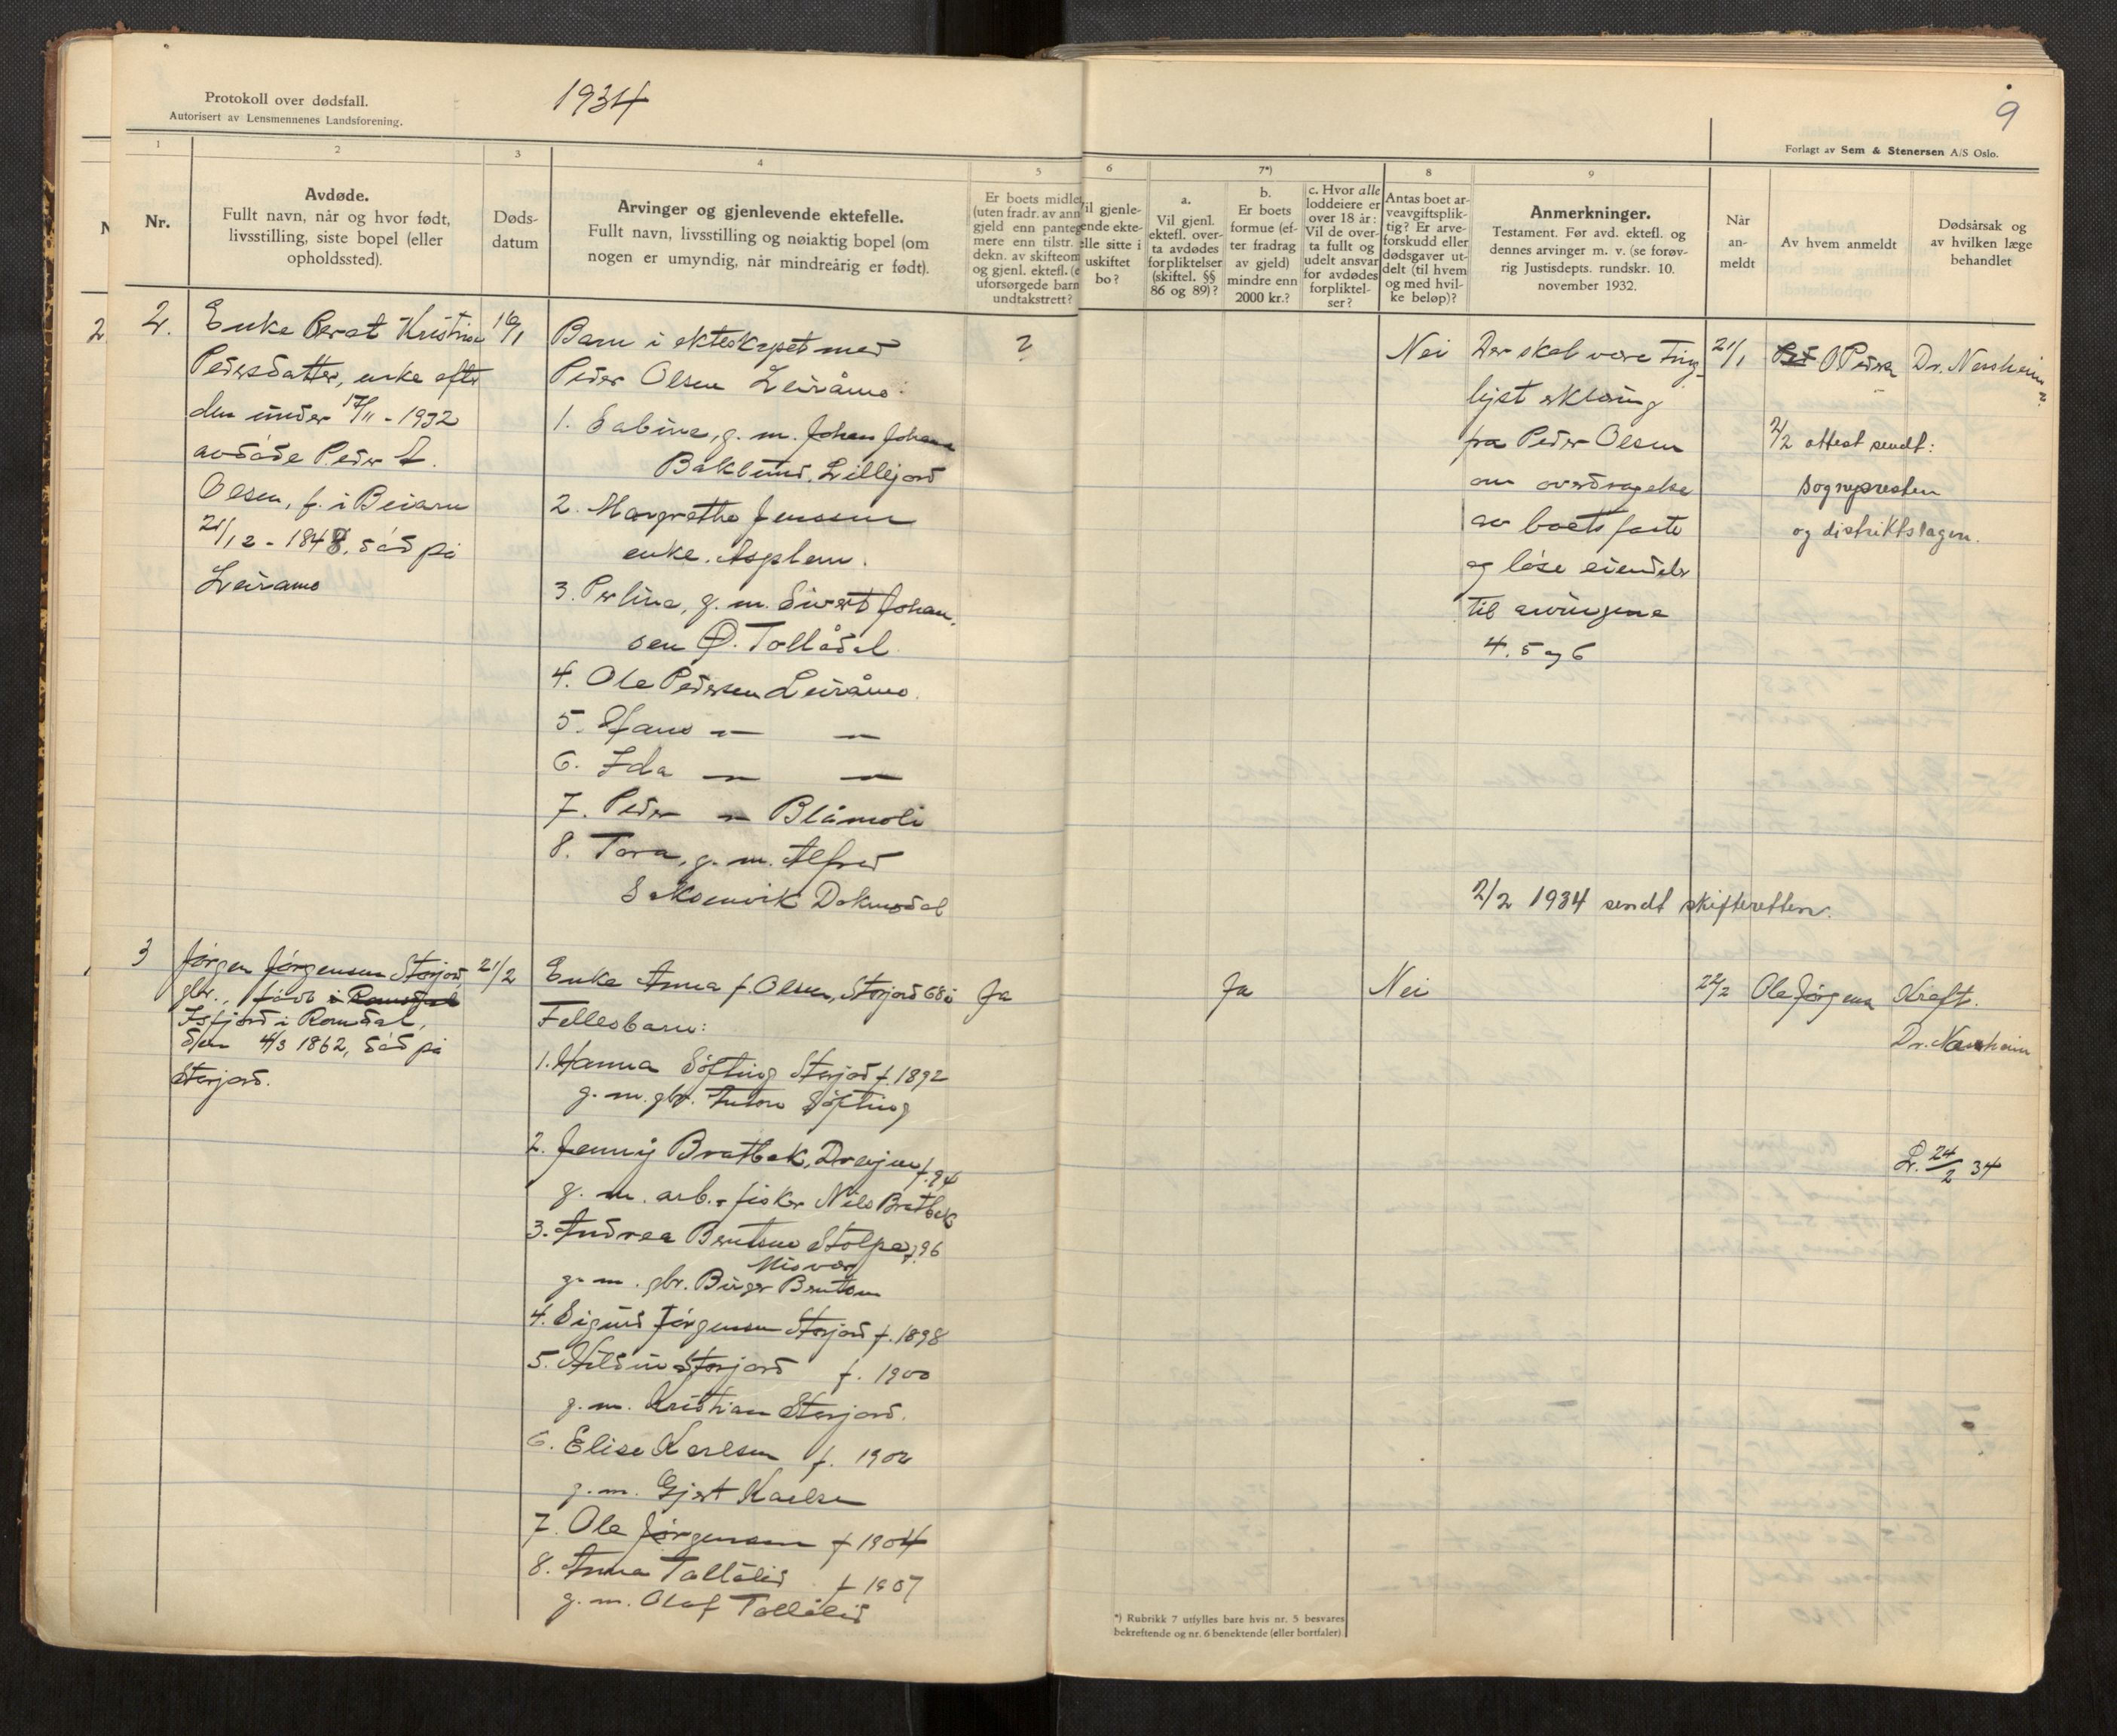 Protokoll over dødsfall.
Autorisert av Lensmennenes Landsforening.
1934
9
Forlagt av Sem & Stenersen A/S Oslo.
1
2
3
4
5
6
7*)
8
9
Nr.
Avdøde.
Fullt navn, når og hvor født,
livsstilling, siste bopel (eller
opholdssted).
Døds-
datum
Arvinger og gjenlevende ektefelle.
Fullt navn, livsstilling og nøiaktig bopel (om
nogen er umyndig, når mindreårig er født).
Er boets midler
(uten fradr. av ann
gjeld enn panteg
mere enn tilstr.
dekn. av skifteom
og gjenl. ektefl. (e
uforsørgede barn
undtakstrett?
il gjenle-
ende ekte-
elle sitte i
uskiftet
bo?
a.
Vil gjenl.
ektefl. over-
ta avdødes
forpliktelser
(skiftel. §§
86 og 89)?
b.
Er boets
formue (ef-
ter fradrag
av gjeld)
mindre enn
2000 kr.?
c. Hvor alle
loddeiere er
over 18 år:
Vil de over-
ta fullt og
udelt ansvar
for avdødes
forpliktel-
ser?
Antas boet ar-
veavgiftsplik-
tig? Er arve-
forskudd eller
dødsgaver ut-
delt (til hvem
og med hvil-
ke beløp)?
Anmerkninger.
Testament. Før avd. ektefl. og
dennes arvinger m. v. (se forøv-
rig Justisdepts. rundskr. 10.
november 1932.
Når
an-
meldt
Av hvem anmeldt
Dødsårsak og
av hvilken læge
behandlet
2
2.
Enke Berat Kristine
Pedersdatter, enke efter
den under 17/11 - 1932
avdøde Peder
Olsen, f. i Beiarn
21/12 - 1848, død på
Leiramo
16/1
Barn i ekteskapet med
Peder Olsen Leiråmo:
1. Sabine, g. m. Johan Johans
Baklund, Lillejord
2. Margrethe Jenssen
enke. Asphem.
3. Perline, g. m. Sivert Johan-
sen Ø. Tollådal
4. Ole Pedersen Leiråmo.
5. Hans — —
6. Ida — —
7. Peder — Blåmoli
8. Tora, g. m. Alfred
Saksenvik Dokmodal
?
Nei
Der skal være ting-
lyst erklæring
fra Peder Olsen
om overdragelse
av boets faste
og løse eiendeler
til arvingene
4. 5 og 6
2/2 1934 sendt skifteretten.
21/1
O Peders
2/2 attest sendt:
sognepresten
og distriktslægen.
Dr. Norsheim
3
Jørgen Jørgensen Storjord
gbr., født i Romsdal
Isfjord i Romsdal,
den 4/3 1862, død på
Storjord.
21/2
Enke Anna f. Olsen, Storjord 68 år
Fellesbarn:
1. Hanna Søfting Storjord f. 1892
g. m. gbr. Anton Søfting
2. Jenny Bratbak, f. 94
g. m. arb. - fisker Nils Bratbak
3. Andrea Bentsen Stolpe f. 96
Misvær
g. m. gbr. Birger Bentsen
4. Sigurd Jørgensen Storjord f. 1898
5. Storjord f. 1900
g. m. Kristian Storjord.
6. Elise Karlsen f. 1902
g. m. Gjert Karlsen
7. Ole Jørgensen f 1904
8. Anna Tollålid f 1907
g. m. Olaf Tollålid
Ja
Ja
Nei
22/2
Ole Jørgens
Kreft.
Dr. Norsheim
24/2 34
*) Rubrikk 7 utfylles bare hvis nr. 5 besvares
bekreftende og nr. 6 benektende (eller bortfaler)